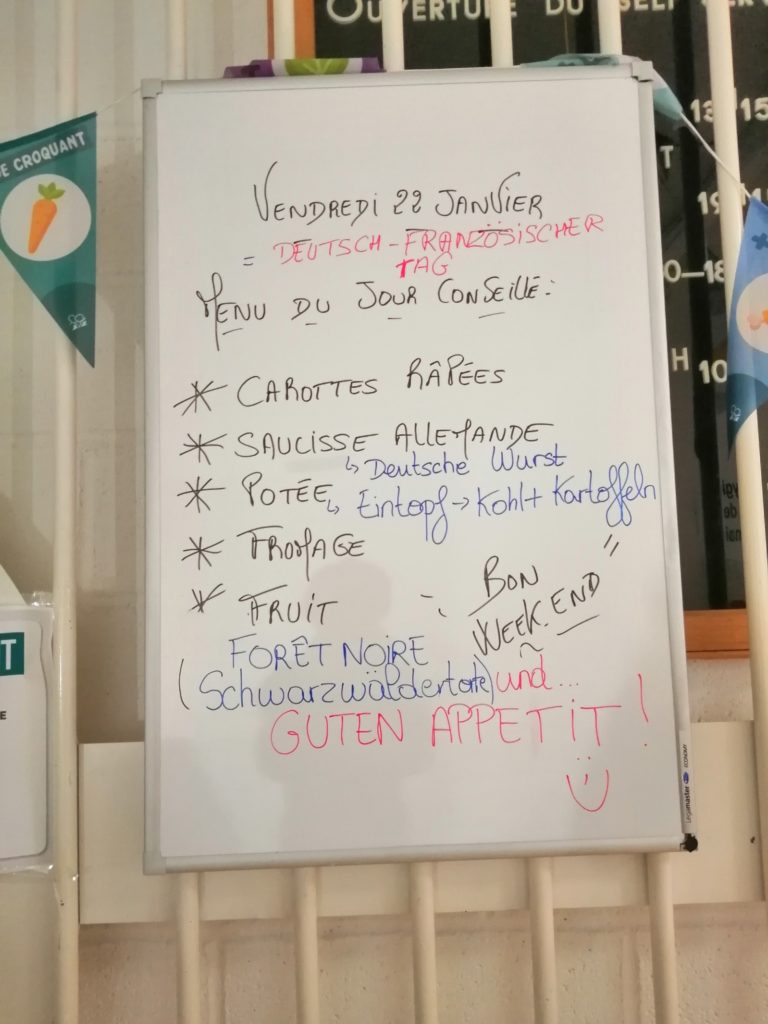 OUVERTURE DU SELF SER
13
15
T
19
0-18
H
10
E CROQUANT
VENDREDI 22 JANVIER
= DEUTSCH-FRANZÖSISCHER
TAG
MENU DU JOUR CONSEILLÉ:
* CAROTTES RÂPÉES
* SAUCISSE ALLEMANDE
↳ Deutsche Wurst
* POTÉE ↳ Eintopf → Kohl + Kartoffeln
* FROMAGE
* FRUIT
BON
WEEK.END
FORÊT NOIRE
(Schwarzwäldertorte) und...
GUTEN APPETIT!
T
E
Legamaster ECONOMY